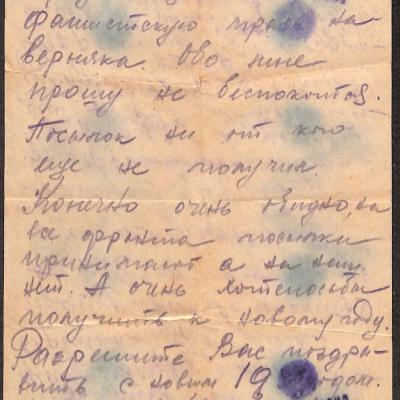 фашистскую мразь на-
верняка. Обо мне
прошу не беспокоится.
Посылок ни от кого
еще не получил.
Конечно очень обидно, на
все фронта посылки
принимают а на наш
нет. А очень хотелось бы
получить к новому году.
Разрешите Вас поздра-
вить с новым 19 годом.